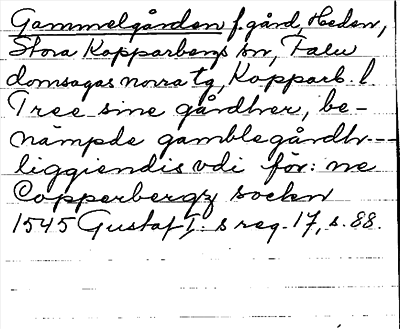 Gammelgården f. gård, Heden,
Stora Kopparbergs sn, Falu
domsagas norra tg, Kopparb. l
Tree sine gårdher, be-
nämpde gamble gårdh---
liggiendis vdi för: ne
Copperbergz sockn
1545 Gustaf I:s reg. 17, s. 88.